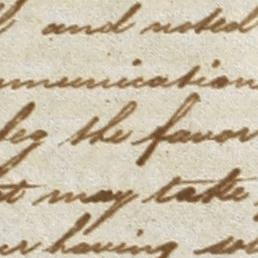 and noted
mmunication
beg the favor
t may take
ur having